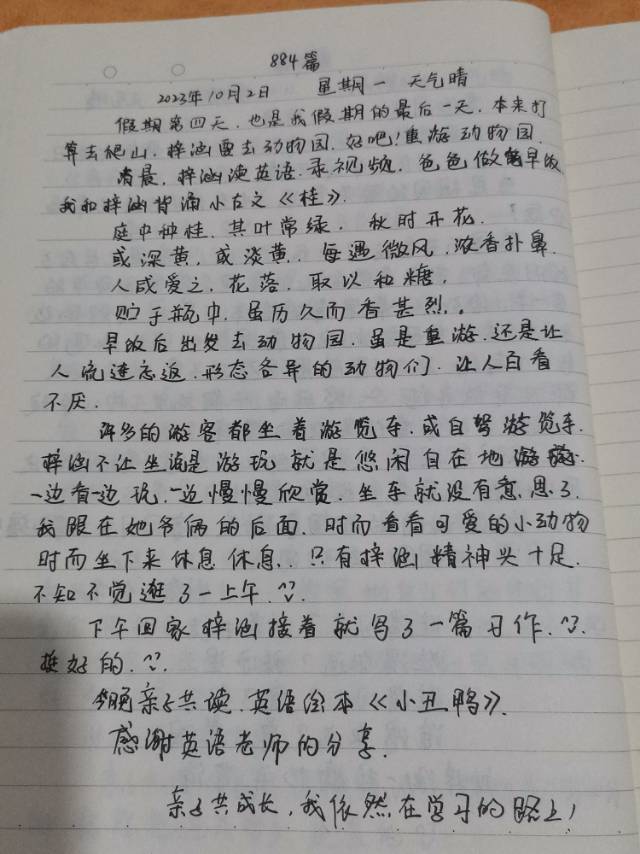 884篇
2023年10月2日 星期一 天气晴
假期第四天,也是我假期的最后一天,本来打
算去爬山,梓涵要去动物园,好吧!重游动物园.
清晨,梓涵读英语.录视频,爸爸做早饭
我和梓涵背诵小古文《桂》.
庭中种桂,其叶常绿,秋时开花.
或深黄,或淡黄.每遇微风,浓香扑鼻.
人咸爱之,花落,取以和糖,
贮于瓶中,虽历久而香甚烈..
早饭后出发去动物园.虽是重游,还是让
人流连忘返.形态各异的动物们.让人百看
不厌.
许多的游客都坐着游览车.或自驾游览车.
梓涵不让坐说是游玩就是悠闲自在地
一边看一边玩,一边慢慢欣赏.坐车就没有意思了
我跟在她爷俩的后面.时而看看可爱的小动物
时而坐下来休息休息..只有梓涵精神头十足.
不知不觉逛了一上午.^^
下午回家梓涵接着就写了一篇习作.^^.
挺好的.^^.
今晚亲子共读.英语绘本《小丑鸭》.
感谢英语老师的分享.
亲子共成长,我依然在学习的路上!